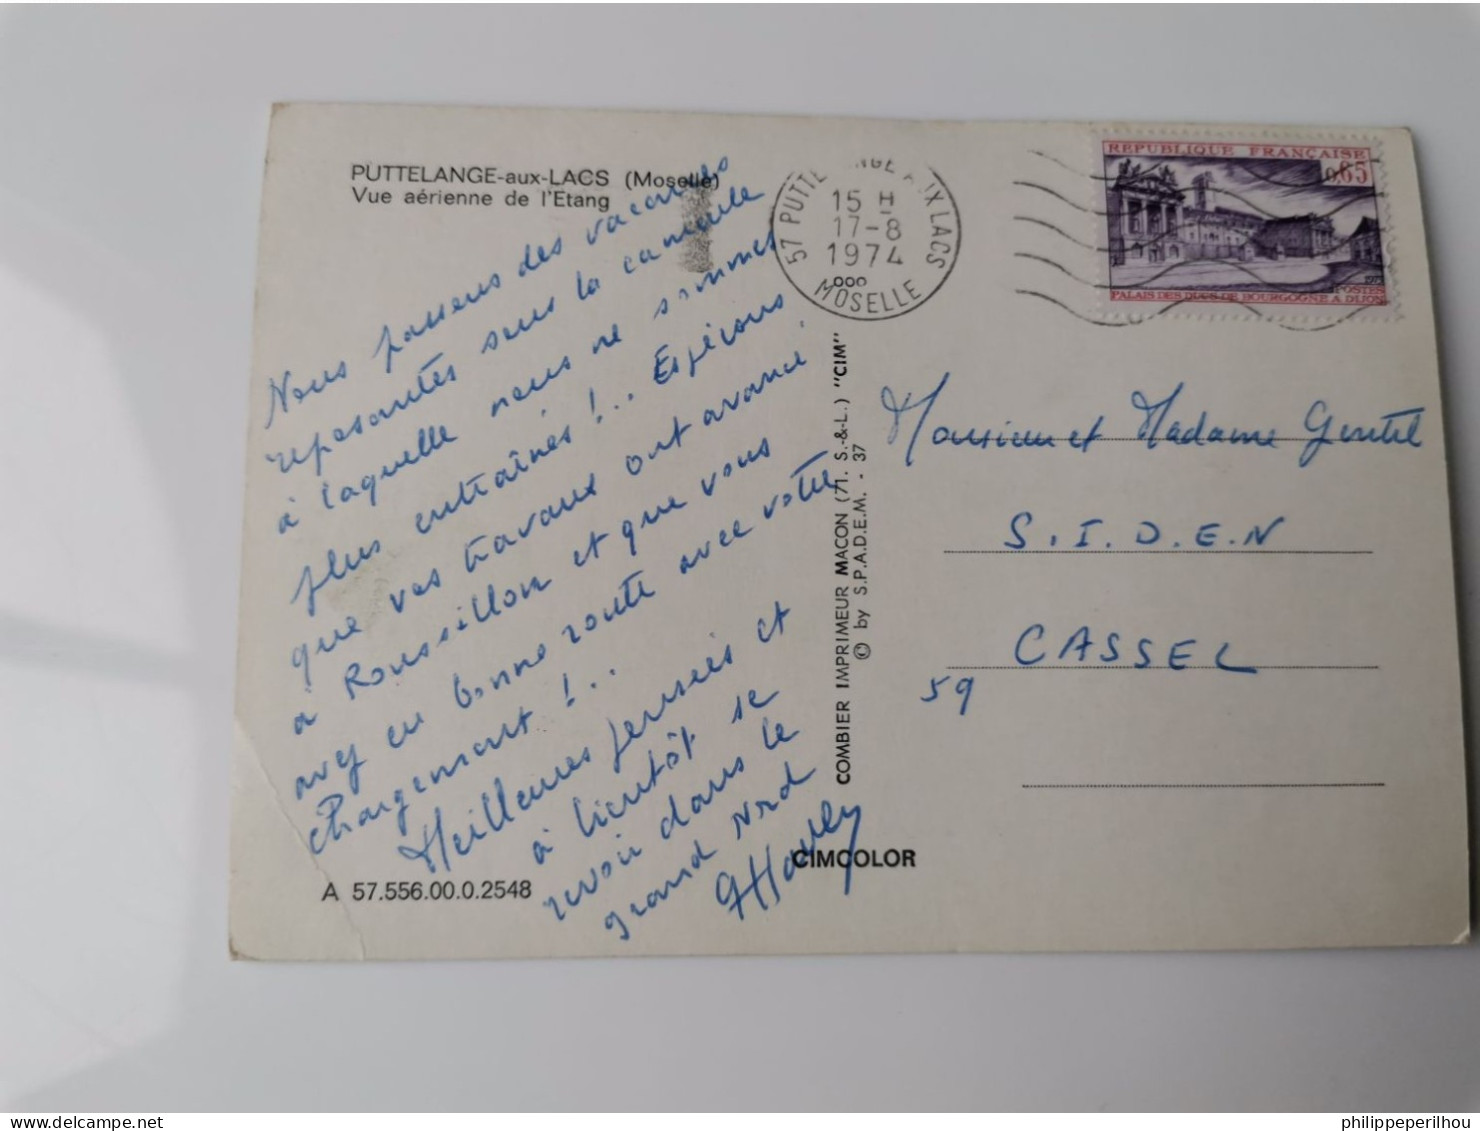 PUTTELANGE-aux-LACS (Moselle)
Vue aérienne de l'Etang
Nous passons des vacances
reposantes sous la canicule
à laquelle nous ne sommes
plus entraînés !.. Espérons
que vos travaux ont avancé
à Roussillon et que vous
avez eu bonne route avec votre
chargement !..
Meilleures pensées et
à bientôt se
revoir dans le
grand Nord
A 57.556.00.0.2548
57 PUTTELANGE AUX LACS
15 H
17-8
1974
MOSELLE
REPUBLIQUE FRANÇAISE
0,65
POSTES
PALAIS DES DUCS DE BOURGOGNE A DIJON
COMBIER IMPRIMEUR MACON (71. S.-&-L.) "CIM"
© by S.P.A.D.E.M. - 37
CIMCOLOR
Monsieur et Madame Gentil
S.I.D.E.N
CASSEL
59
www.delcampe.net
philippeperilhou